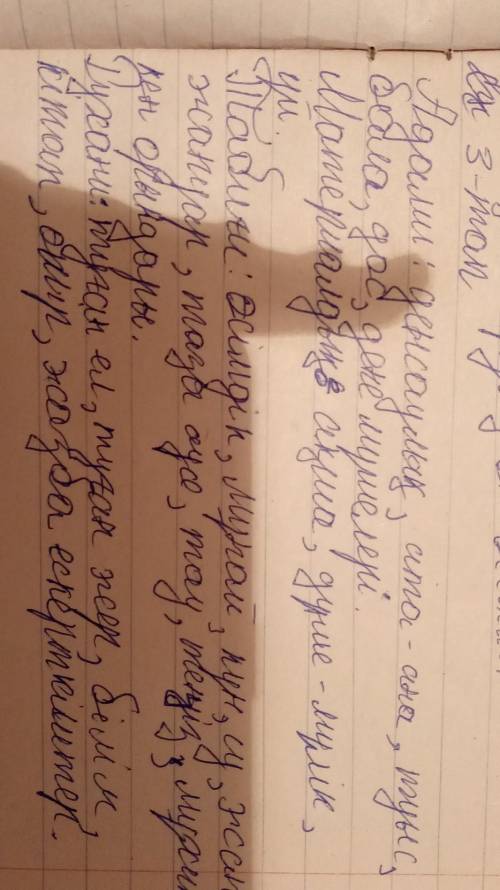 3-топ
Адами: денсаулық, ата-ана, туыс,
бала, дос, дене мүшелері.
Материалдық: ақша, дүние-мүлік,
үй.
Табиғи: өсімдік, мұнай, күн, су, жан
жануар, таза ауа, тау, теңіз,
кен орындары.
Рухани: туған ел, туған жер, білім
кітап, өнер, жазба ескерткіштер.